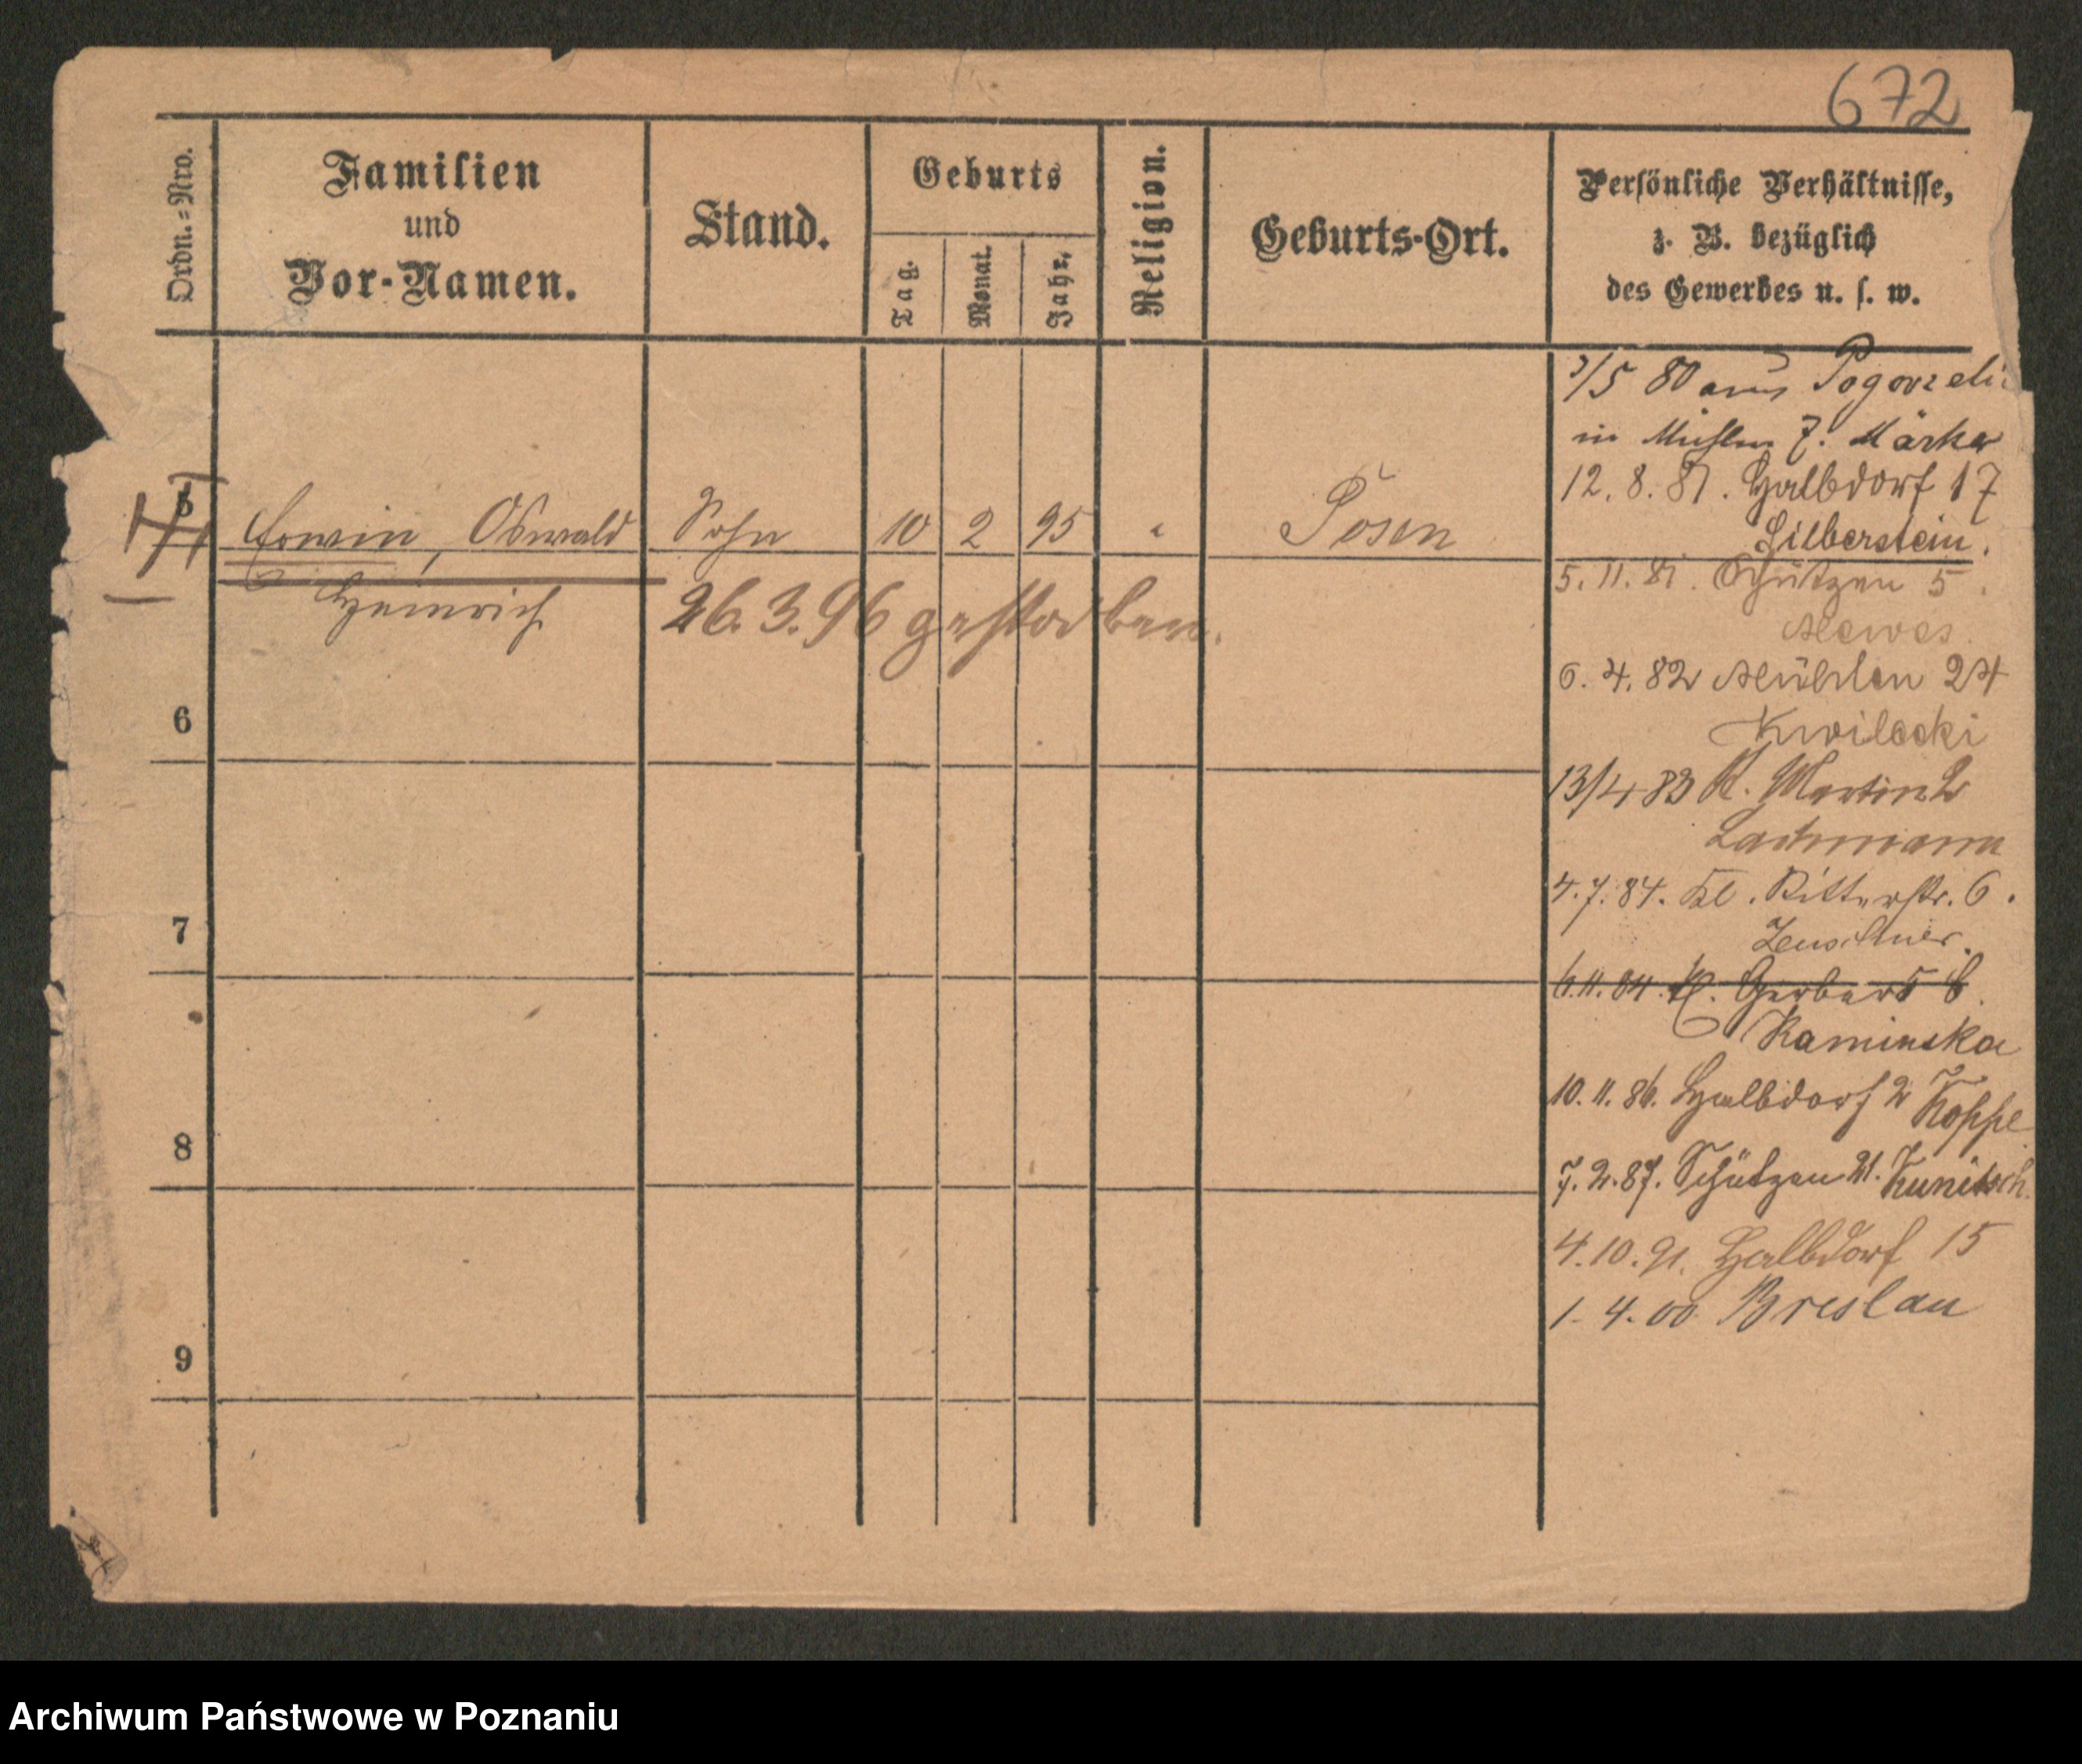 672
Ordn.=Nro.
Familien
und
Vor-Namen.
Stand.
Geburts
Tag.
Monat.
Jahr.
Religion.
Geburts-Ort.
Persönliche Verhältnisse,
z. B. bezüglich
des Gewerbes u. s. w.
/5 80 aus Pogorzeli
in Mühlen 7. Märker
12. 8. 81. Halbdorf 17
Silberstein.
5 Erwin, Oswald Sohn 10 2 95 " Posen
Heinrich
26. 3. 96 gestorben.
5. 11. 81. Schützen 5.
Mewes.
6. 4. 82 Mühlen 24
Kwilecki
6
13/4 83 St. Martin 2
Lachmann
4. 7. 84. Kl. Ritterstr. 6.
Zeuschner.
7
6. 11. 84. Kl. Gerber 5 6.
Kaminska
10. 11. 86. Halbdorf 2 Koppe.
8
7. 2. 87. Schützen 21. Kunitsch.
4. 10. 91. Halbdorf 15
1. 4. 00. Breslau
9
Archiwum Państwowe w Poznaniu